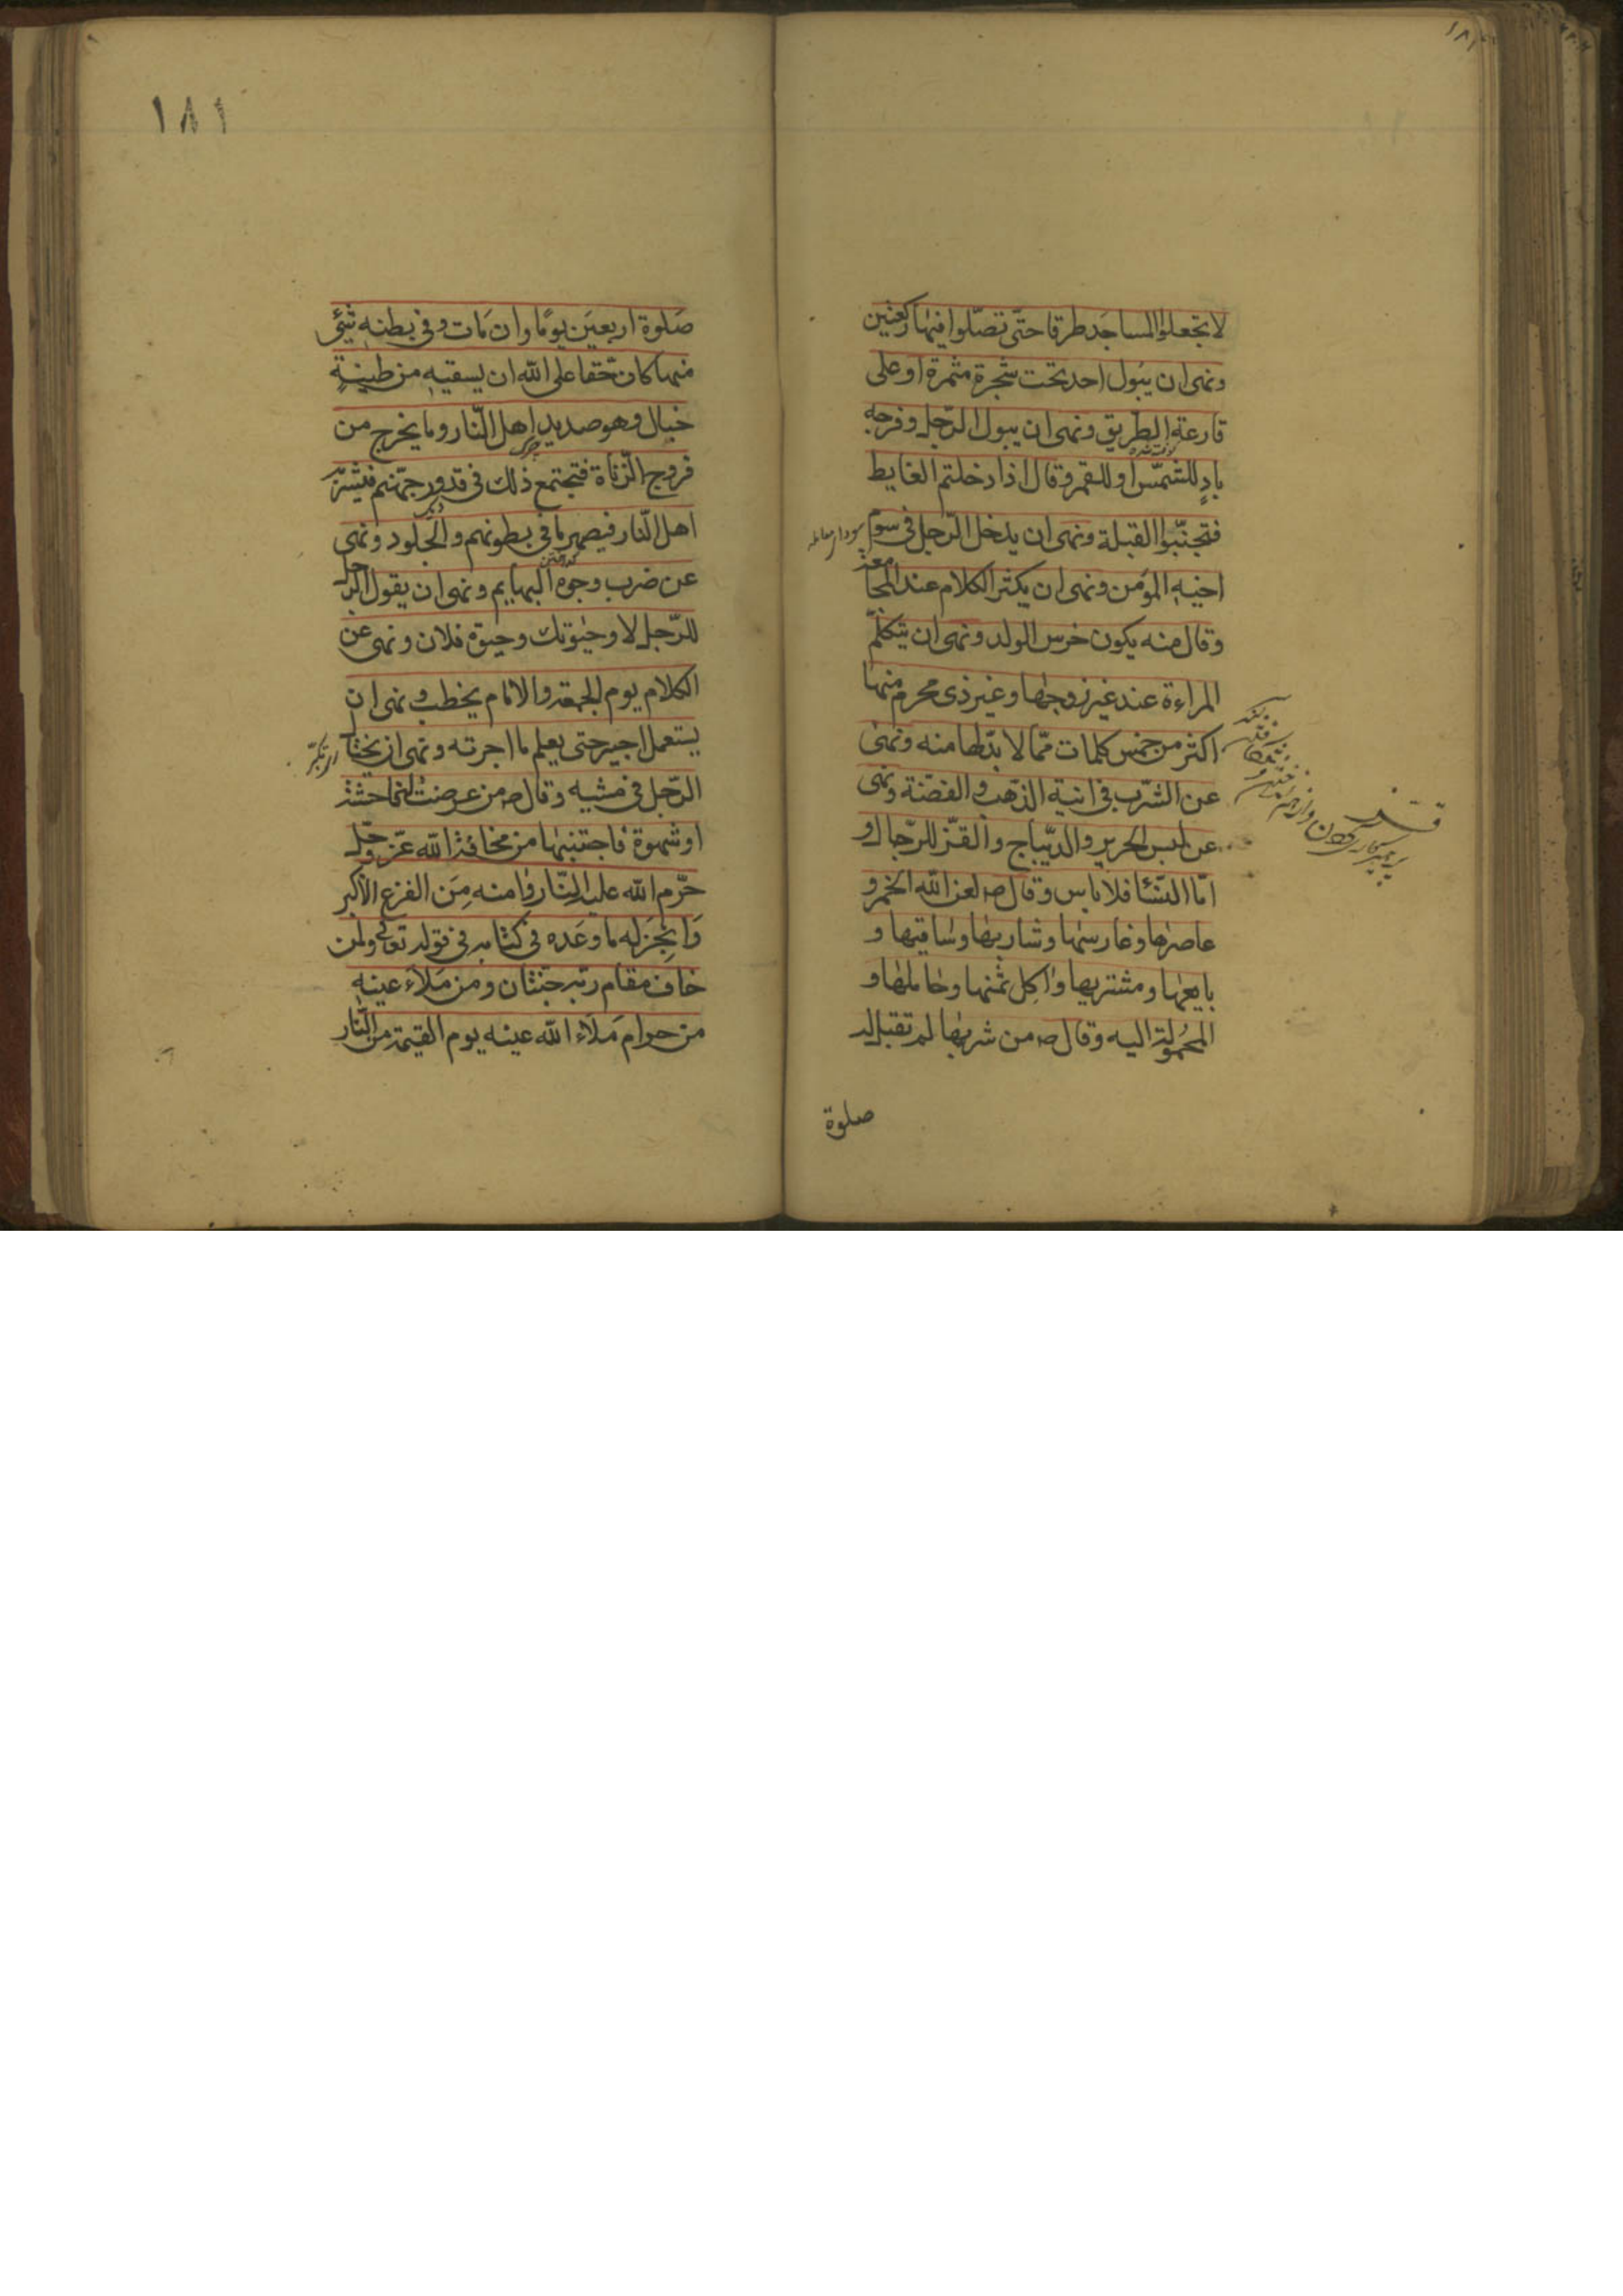 لا تجعلوا المساجد طرقا حتّى تصلّوا فيها ركعتين
ونهى ان يبول احد تحت شجرة مثمرة او على
قارعة الطريق ونهى ان يبول الرّجل وفرجه
بادٍ للشمس او للقمر وقال اذا دخلتم الغايط
فتجنّبوا القبلة ونهى ان يدخل الرّجل فى سوم
اخيه المؤمن ونهى ان يكثر الكلام عند المجامعة
وقال منه يكون خرس الولد ونهى ان يتكلّم
المراءة عند غير زوجها وغير ذى محرم منها
اكثر من خمس كلمات ممّا لا بدّ لها منه ونهى
عن الشرب فى انية الذّهب والفضّة ونهى
عن لبس الحرير والدّيباج والقزّ للرّجال و
امّا النّسا فلا باس وقال ص لعن اللّه الخمر و
عاصرها وغارسها وشاربها وساقيها و
بايعها ومشتريها واكِل ثمنها وحاملها و
المحمُولة اليه وقال ص من شربها لم تقبل له
صلوة
١٨١
صَلوة اربعيَن يومًا وان مَات وفى بطنه شئ
منها كان حقّا على اللّه ان يسقيه من طينةٍ
خبال وهو صديد اهل النّار وما يخرج من
فروج الزّناة فتجتمع ذلك فى قدور جهنّم فيشربه
اهل النّار فيصهر ما فى بطونهم والجُلود ونهى
عن ضرب وجوه البهايم ونهى ان يقول الرّجل
للرّجل لا وحيوتك وحيوة فلان ونهى عن
الكلام يوم الجمعة والامام يخطب ونهى ان
يستعمل اجير حتى يعلم ما اجرته ونهى ان يختال
الرّجل فى مشيه وقال ص من عرضت له فاحشة
او شهوة فاجتنبها من مخافة اللّه عزّ وجلّ
حرّم اللّه عليه النّار وامنه مِن الفزع الاكبر
وَانجَزَ له ما وعَده فى كتابه فى قوله تعالى ولمن
خاف مقام ربّه جنّتان ومن مَلاَء عينه
من حرام مَلاَء اللّه عينه يوم القيمة من النّار